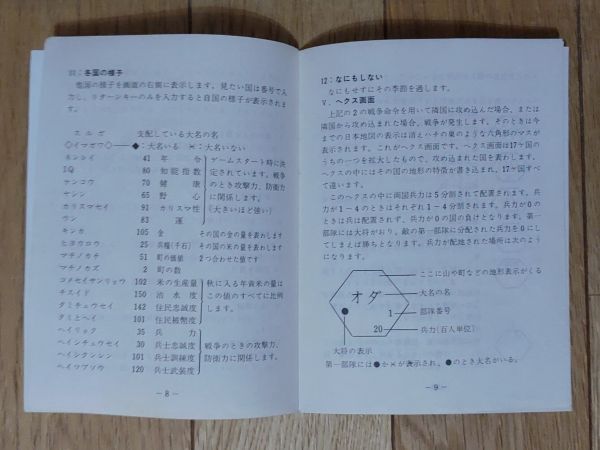 11：各国の様子
他国の様子を画面の右側に表示します。見たい国は番号で入
力し、リターンキーのみを入力すると自国の様子が表示されま
す。
スルガ 支配している大名の名
◇イマガワ◇ ◆：大名いる ✕：大名いない
ネンレイ 41 年令
IQ 80 知能指数
ケンコウ 70 健康
ヤシン 65 野心
カリスマセイ 91 カリスマ性
ウン 83 運
ゲームスタート時に決
定されています。戦争
のとき攻撃力、防衛力
に関係します。
(大きいほど強い)
キンカ 105 金 その国の金の量を表わします
ヒョウロウ 25 兵糧(千石) その国の米の量を表わします
マチノカチ 51 町の価値 2つ合わせた値です
マチノカズ 2 町の数
コメセイサンリョウ 102 米の生産量
チスイド 150 治水度
タミチュウセイ 142 住民忠誠度
タミヒヘイ 101 住民疲弊度
秋に入る年貢米の量は
この値のすべてに比例
します。
ヘイリョク 35 兵力
ヘイシチュウセイ 30 兵士忠誠度
ヘイシクンレン 101 兵士訓練度
ヘイソウビ 120 兵士武装度
戦争のときの攻撃力、
防衛力に関係します。
－8－
12：なにもしない
なにもせずにその季節を過します。
V．ヘクス画面
上記の2の戦争命令を用いて隣国に攻め込んだ場合、または
隣国から攻め込まれた場合、戦争が発生します。そのときは今
までの日本地図の表示は消えハチの巣のような六角形のマスが
表示されます。これがヘクス画面です。ヘクス画面は17ヶ国の
うちの一つを拡大したもので、攻め込まれた国を表わします。
ヘクスの中にはその国の地形の特徴が書き込まれ、17ヶ国すべ
て違います。
このヘクスの中に両国兵力は5分割されて配置されます。兵
力が1～4のときはそれぞれ1～4分割されます。兵力が0の
ときは兵は配置されず、兵力が0の国の負けとなります。第一
部隊には大将がおり、敵の第一部隊に分配された兵力を0にし
てしまえば勝ちとなります。兵力が配地された場所は次のよう
になります。
ここに山や町などの地形表示がくる
オダ 大名の名
1 部隊番号
20 兵力(百人単位)
大将の表示
第一部隊には●か✕が表示され、●のとき大名がいる。
－9－